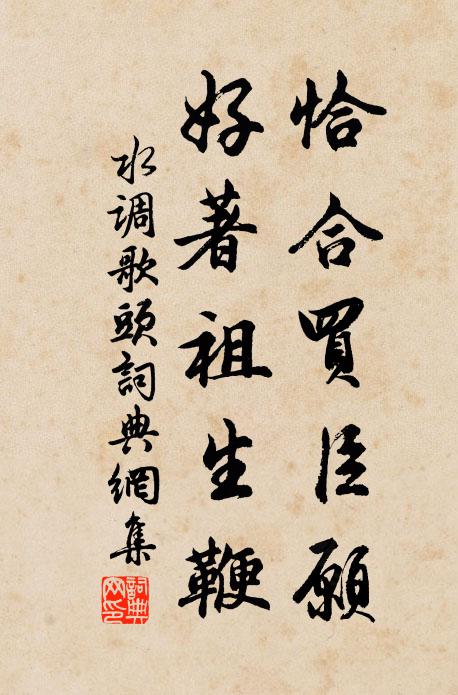 恰合買臣願
好著祖生鞭
水调歌頭詞典網集
詞典網印